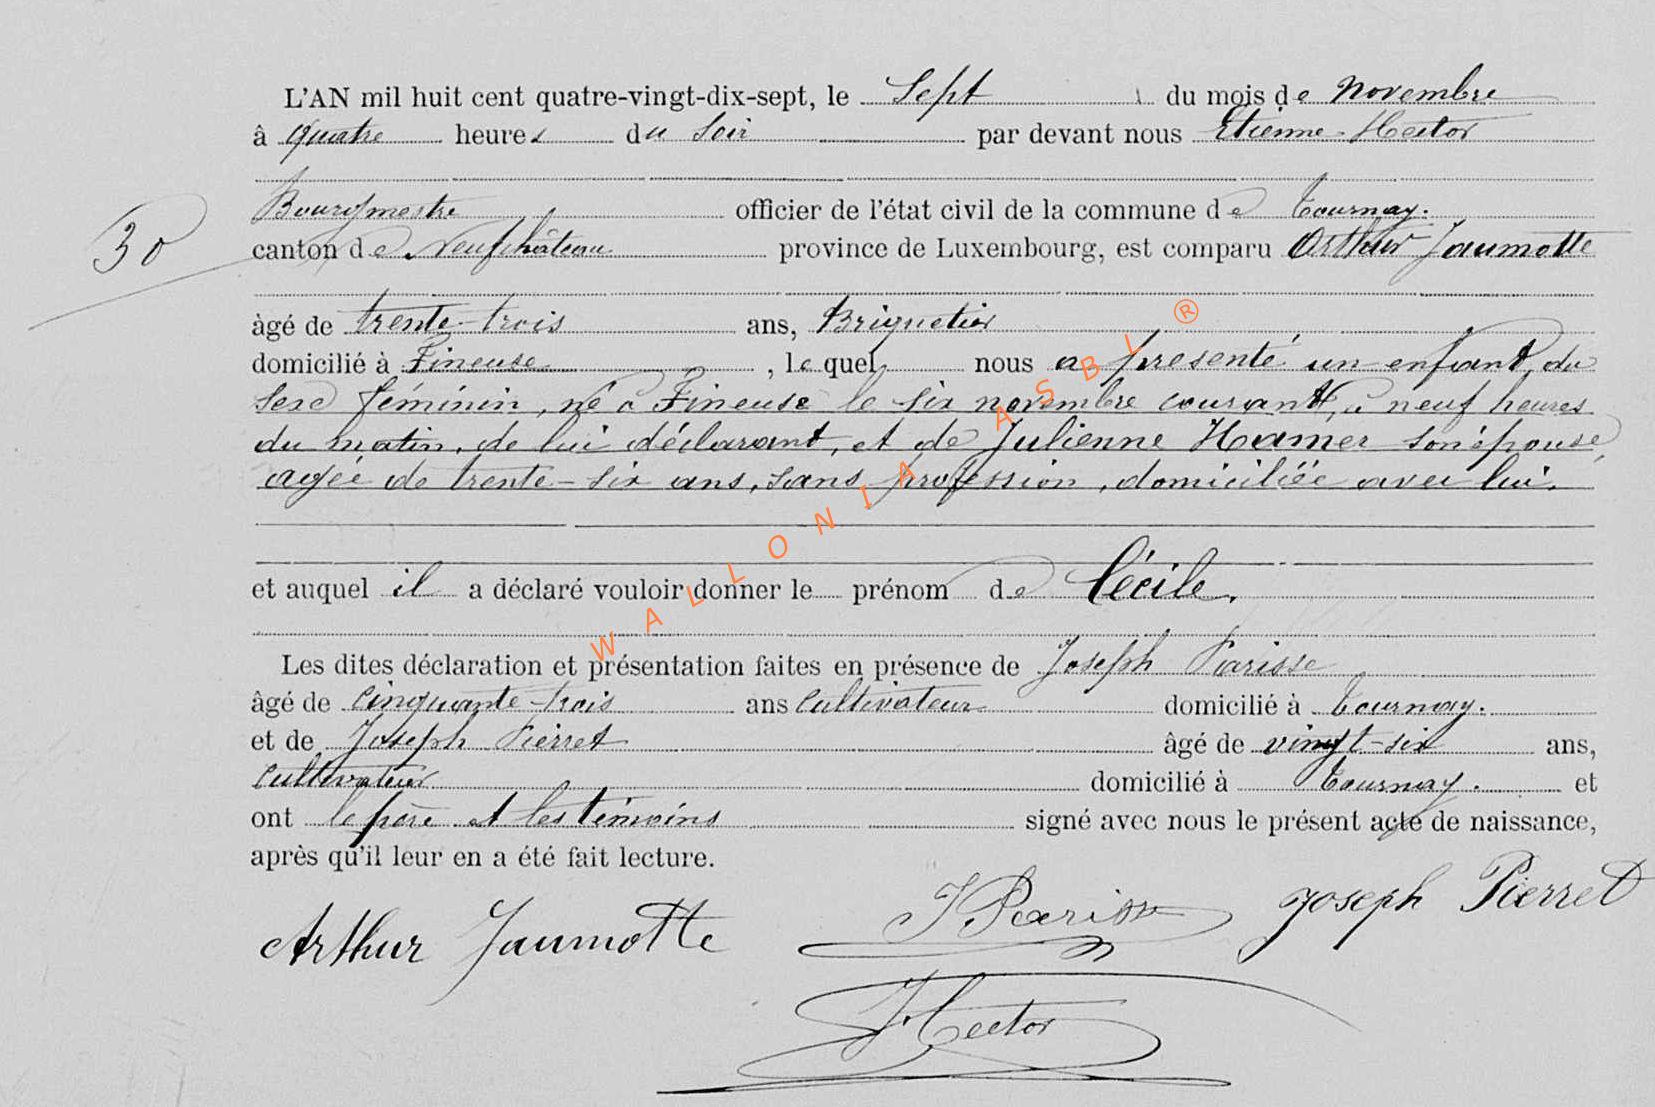 L'AN mil huit cent quatre-vingt-dix-sept, le Sept du mois de Novembre
à quatre heures du soir par devant nous Etienne-Hector
Bourgmestre officier de l'état civil de la commune de Tournay.
30
canton de Neufchâteau province de Luxembourg, est comparu Arthur Jaumotte
âgé de trente-trois ans, Briquetier
domicilié à Fineuse, lequel nous a présenté un enfant du
sexe féminin, né à Fineuse le six novembre courant, à neuf heures
du matin, de lui déclarant, et de Julienne Hamer son épouse,
agée de trente-six ans, sans profession, domiciliée avec lui.
et auquel il a déclaré vouloir donner le prénom de Cécile.
Les dites déclaration et présentation faites en présence de Joseph Parisse
âgé de cinquante-trois ans Cultivateur domicilié à Tournay.
et de Joseph Pierret âgé de vingt-six ans,
cultivateur domicilié à Tournay. et
ont le père et les témoins signé avec nous le présent acte de naissance,
après qu'il leur en a été fait lecture.
Arthur Jaumotte J Parisse Joseph Pierret
Hector
WALLONIA ASBL ®